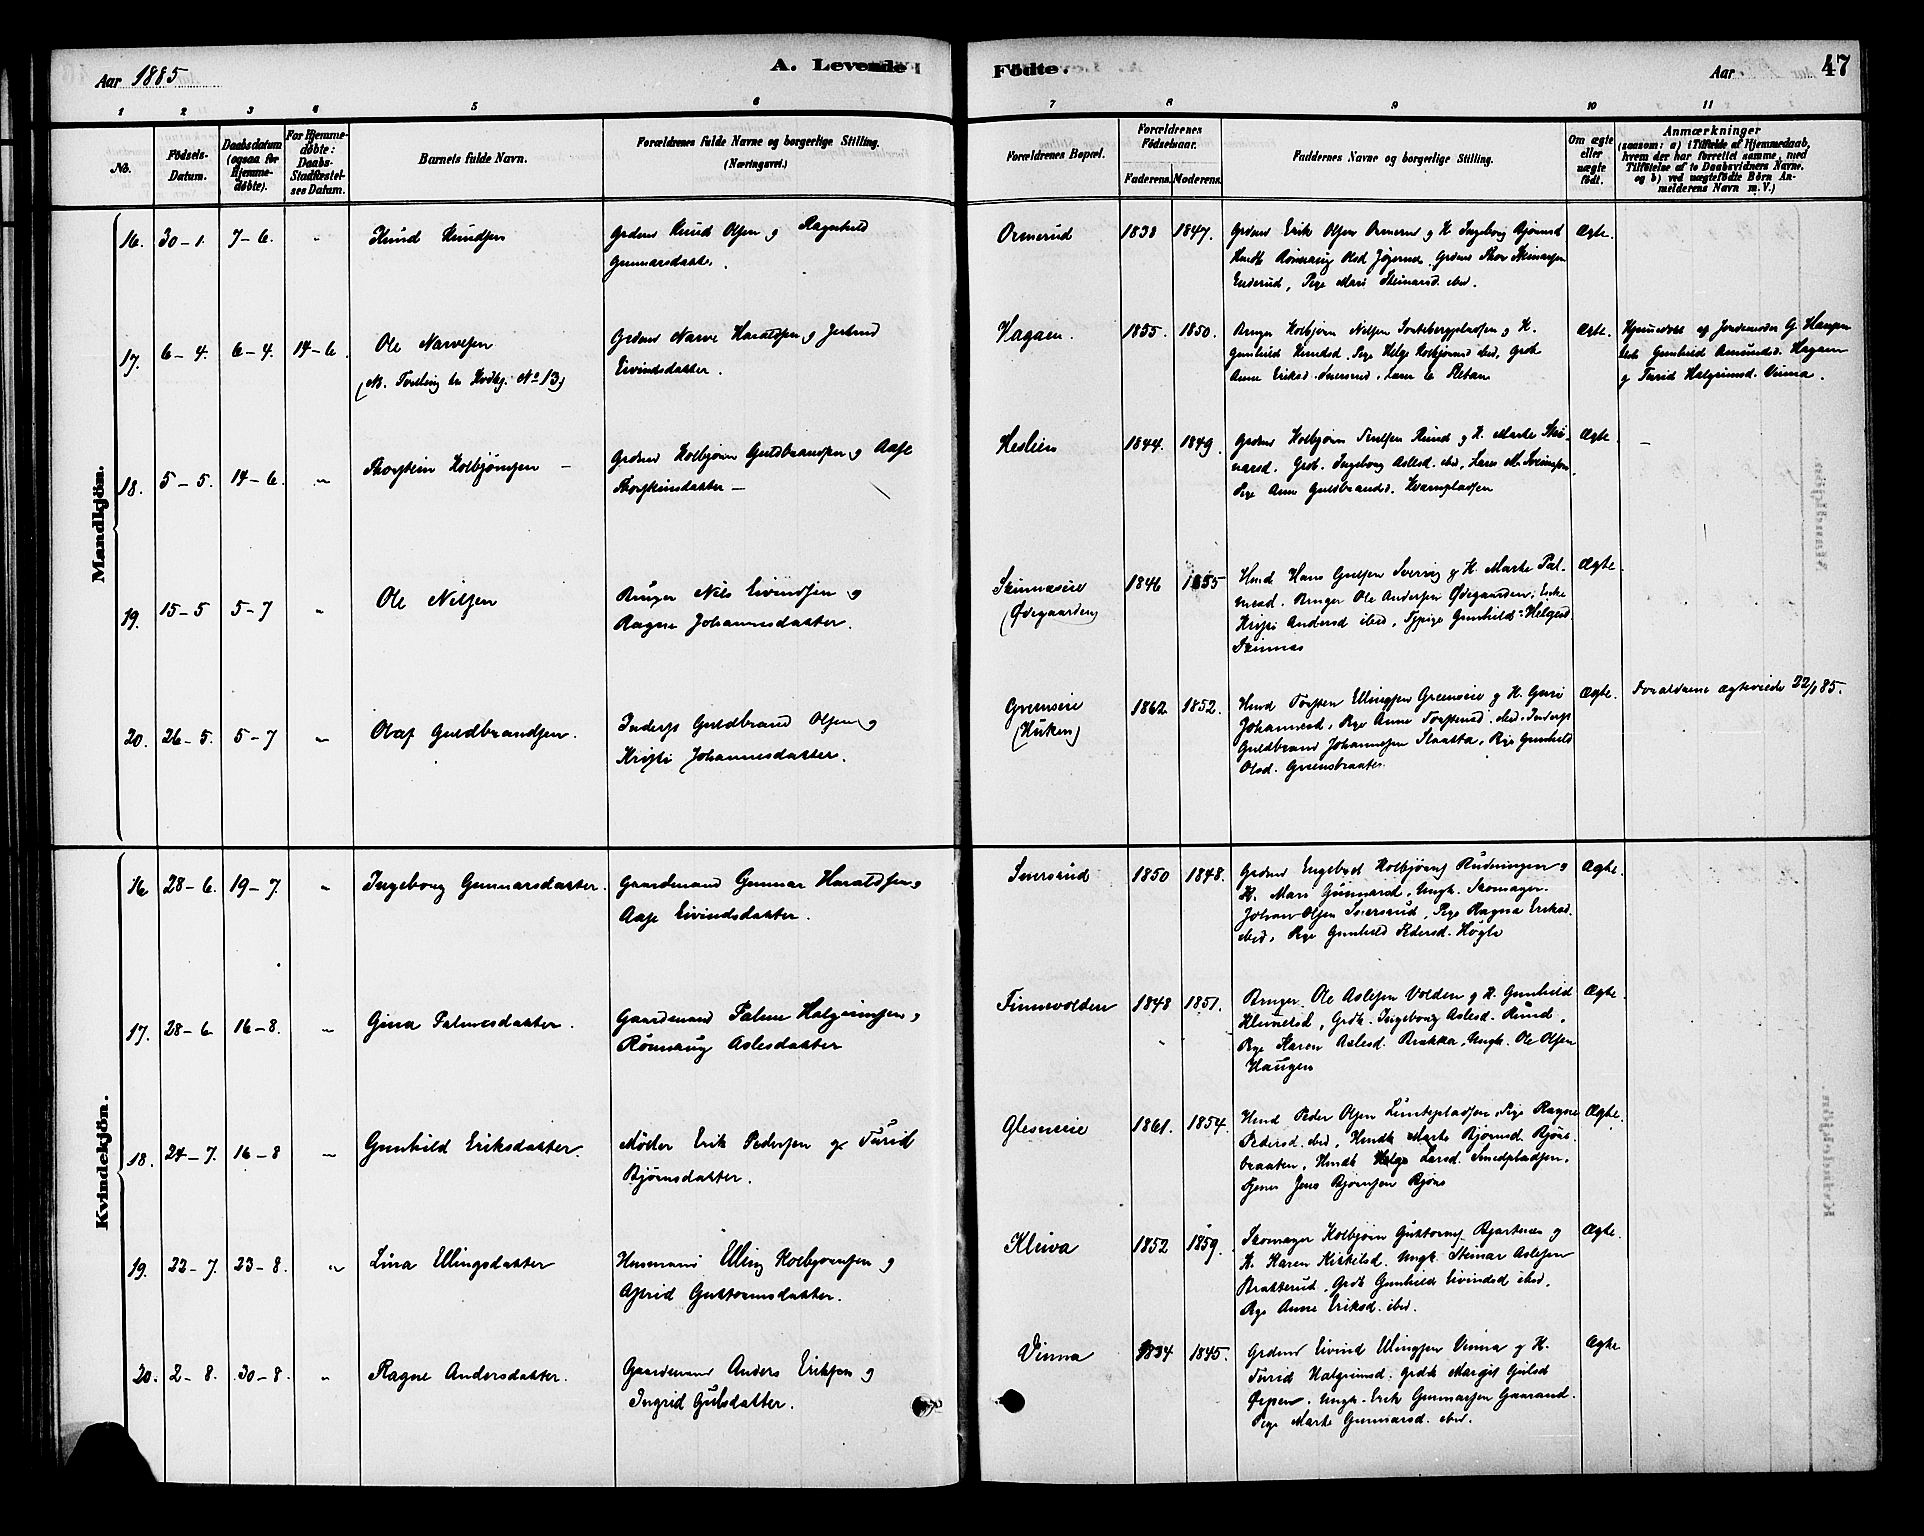 Aar 1885
A. Levende
Fødte.
Aar
47
1 2 3 4 5 6 7 8 9 10 11
No.
Fødsels-Datum.
Daabsdatum (ogsaa for Hjemmedøbte).
For Hjemmedøbte: Daabs-Stadfæstelses Datum.
Barnets fulde Navn.
Forældrenes fulde Navne og borgerlige Stilling. (Næringsvei.)
Forældrenes Bopæl.
Forældrenes Fødselsaar.
Faderens. Moderens.
Faddernes Navne og borgerlige Stilling.
Om ægte eller uægte født.
Anmærkninger
(saasom: a) i Tilfælde af Hjemmedaab, hvem der har forrettet samme, med Tilføielse af to Daabsvidners Navne. og b) ved uægtefødte Børn Anmelderens Navn m. V.)
Mandkjøn.
16. 30-1. 7-6. " Knud Knudsen
Grdmd Knud Olsen og Ragnhild
Gunnarsdatter.
Ormerud 1838 1847.
Grdmd Erik Olsen Ormerud og K. Ingeborg Bjørnsd
Mari Steinarsd. ibid.
Ægte.
17. 6-4. 6-4. 14-6.
Ole Narvesen
(N. Tvilling tr Kvdkj. No 13)
Grdmd Narve Haraldsen og Jertrud
Eivindsdatter.
Hagaen. 1855. 1850.
Bruger Kolbjørn Nilsen og K.
Gunhild Knudsd. Pige Helge Kolbjørnsd ibid.
Anne Eriksd.
Ægte.
Hjemmedøbt af Jordemoder G. Haugen
Gunhild Amundsd. Hagaen
og Turid Halgrimsd. Vinna.
18. 5-5. 14-6. "
Thorstein Kolbjørnsen -
Grdmd Kolbjørn Guldbrandsen og Aase
Thorsteinsdatter -
Heslien 1844. 1849.
Grdmd Kolbjørn Rund og K. Marte Stei-
narsd. Ingeborg Aslesd. ibid,
Pige Anne Guldbrandsd. Kvernpladsen
Ægte. -
19. 15-5 5-7 "
Ole Nilsen
Bruger Nils Eivindsen og
Ragne Johannesdatter.
Skinnæseie
(Ødegaarden)
1846 1855
Hmd Hans og K. Marte Pal-
mesd. Bruger Ole Andersen Ødegaarden, Enke
Kristi Andersd ibid, Tjpige Gunhild Helgesd.
Skinnæs
Ægte.
20. 26-5. 5-7 "
Olaf Guldbrandsen.
Inderst Guldbrand Olsen og
Kristi Johannesdatter.
Greenseie
(Huken)
1862 1852.
Hmd Torsten Ellingsen Greenseie og K. Guri
Johannesd, Pige Anne Torstensd. ibid. Inderst
Guldbrand Johannesen Slaatta, Pige Gunhild
Olsd. Greensbraaten
Ægte.
Forældrene ægteviede 22/ 85.
Kvindekjøn.
16 28-6. 19-7. "
Ingeborg Gunnarsdatter.
Gaardmand Gunnar Haraldsen og
Aase Eivindsdatter.
Seiersrud 1850 1848.
Grdmd Engebret Kolbjørns Rudningen og
K. Mari Gunnarsd, Ungk. Skomager
Johan Olsen Seiersrud, Pige Ragna Eriksd.
ibid, Pige Gunhild Pedersd. Høgle
Ægte.
17. 28-6 16-8. "
Gina Palmesdatter.
Gaardmand Palme Halgrimsen og
Rønnaug Aslesdatter
Finnevolden 1848 1851.
Bruger Ole Aslesen Volden og K. Gunhild
Klemetsd, Grdk. Ingeborg Aslesd. Rund,
Pige Karen Aslesd. Brakka, Ungk. Ole Olsen
Haugen
Ægte.
18. 24-7. 16-8 "
Gunhild Eriksdatter.
Møller Erik Pedersen og Turid
Bjørnsdatter.
Glesneeie 1861. 1854.
Hmd Peder Olsen Pige Ragne
Pedersd. ibid, Hmdk Marte Bjørnsd. Bjøre-
braaten, Hmdk Helge Larsd. Smedpladsen,
Tjener Jens Bjørnsen
Ægte.
19. 22-7. 23-8. "
Lina Ellingsdatter
Husmand Elling Kolbjørnsen og
Astrid Guttormsdatter.
Kleiva 1852 1859.
Skomager Kolbjørn Guttorms Bjertnes og
K. Karen Kittelsd. Ungk. Steinar Aslesen
Brakkerud, Grdk Gunhild Eivindsd ibid.
Pige Anne Eriksd. ibid.
Ægte.
20. 2-8. 30-8. "
Ragne Andersdatter.
Gaardmand Anders Eriksen og
Ingrid Gulsdatter.
Vinna 1834 1845.
Grdmd Eivind Ellingsen Vinna og K.
Turid Halgrimsd. Grdk Margit Gulsd
Ørpen. Ungk. Erik Gunnarsen Gaarand.
Pige Marte Gunnarsd. ibid.
Ægte